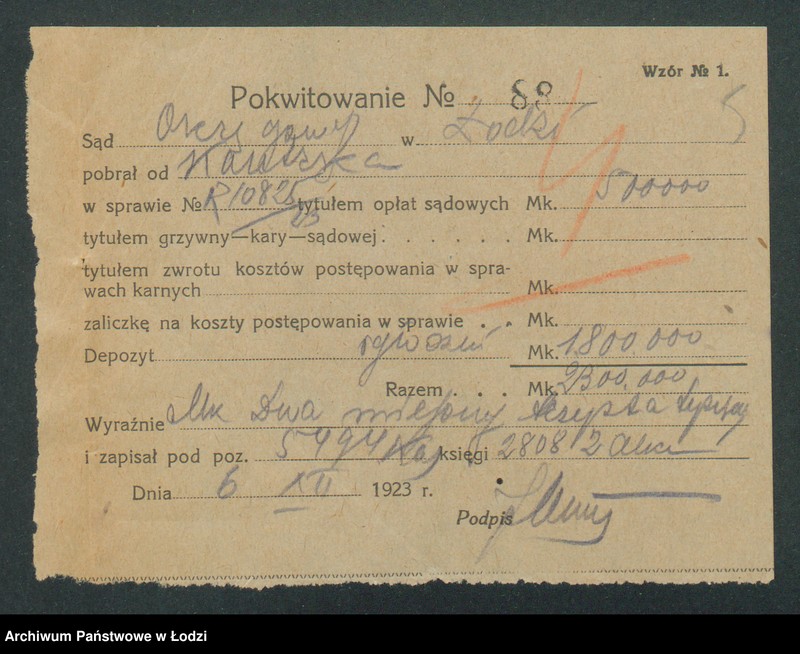 Wzór № 1.
Pokwitowanie № 88
Sąd Okręgowy w Łodzi
pobrał od
w sprawie № R 10825/23 tytułem opłat sądowych Mk. 500000
tytułem grzywny—kary—sądowej . . . . . . Mk.
tytułem zwrotu kosztów postępowania w spra-
wach karnych Mk.
zaliczkę na koszty postępowania w sprawie . . Mk.
Depozyt ogłoszeń Mk. 1800.000
Razem . . . Mk. 2300.000
Wyraźnie Mk Dwa miljony trzysta tysięcy
i zapisał pod poz. 5494 księgi 2808
Dnia 6 XII 1923 r.
Podpis
Archiwum Państwowe w Łodzi